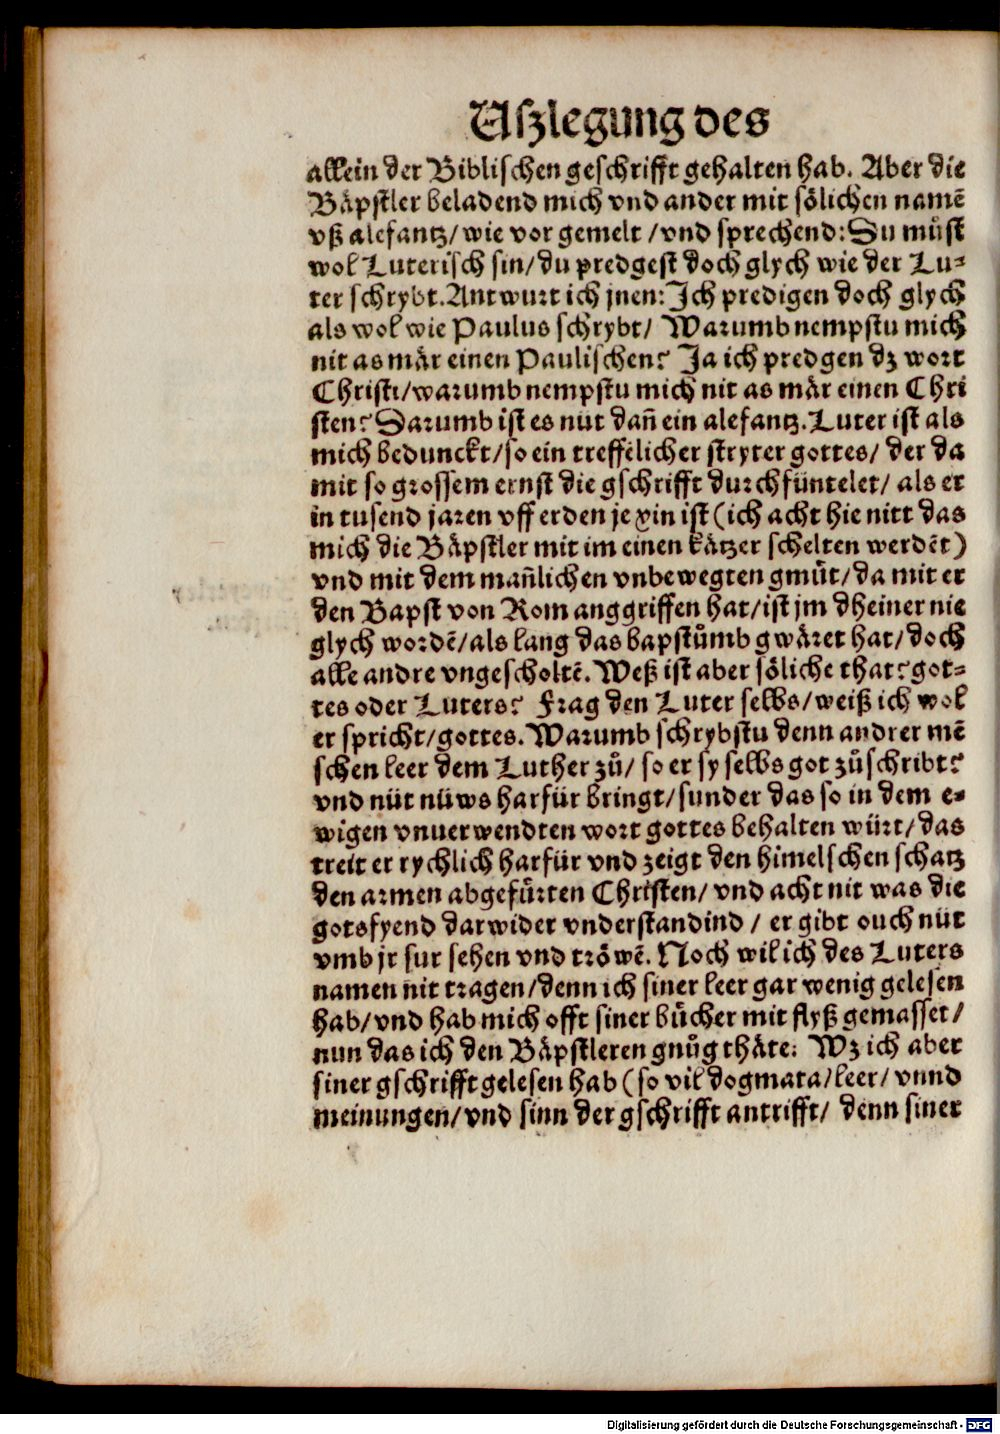 Uszlegung des
allein der Biblischen geschrifft gehalten hab. Aber die
Bäpstler beladend mich vnd ander mit sölichen namē
vß alefantz/ wie vor gemelt /vnd sprechend: Du müst
wol Luterisch sin/ du predgest doch glych wie der Lu⸗
ter schrybt. Antwurt ich jnen: Ich predigen doch glych
als wol wie Paulus schrybt/ Warumb nempstu mich
nit as mär einen Paulischen? Ja ich predgen dz wort
Christi/ warumb nempstu mich nit as mär einen Chri
sten? Darumb ist es nüt dañ ein alefantz. Luter ist als
mich bedunckt/ so ein treffelicher stryter gottes/ der da
mit so grossem ernst die gschrifft durchfüntelet/ als er
in tusend jaren vff erden je xin ist (ich acht hie nitt das
mich die Bäpstler mit im einen kätzer schelten werdēt)
vnd mit dem mañlichen vnbewegten gmüt/ da mit er
den Bapst von Rom anggriffen hat/ ist jm dheiner nie
glych wordē/ als lang das bapstůmb gwäret hat/ doch
alle andre vngescholtē. Weß ist aber söliche that? got⸗
tes oder Luters? Frag den Luter selbs/ weiß ich wol
er spricht/ gottes. Warumb schrybstu denn andrer mē
schen leer dem Luther zů/ so er sy selbs got zůschribt?
vnd nüt nüws harfür bringt/ sunder das so in dem e⸗
wigen vnuerwendten wort gottes behalten würt/ das
treit er rychlich harfür vnd zeigt den himelschen schatz
den armen abgefürten Christen/ vnd acht nit was die
gotsfyend darwider vnderstandind / er gibt ouch nüt
vmb jr sur sehen vnd tröwē. Noch wil ich des Luters
namen nit tragen/ denn ich siner leer gar wenig gelesen
hab/ vnd hab mich offt siner bücher mit flyß gemasset/
nun das ich den Bäpstleren gnůg thäte: Wz ich aber
siner gschrifft gelesen hab (so vil dogmata/ leer/ vnnd
meinungen/ vnd sinn der gschrifft antrifft/ denn siner
Digitalisierung gefördert durch die Deutsche Forschungsgemeinschaft - DFG